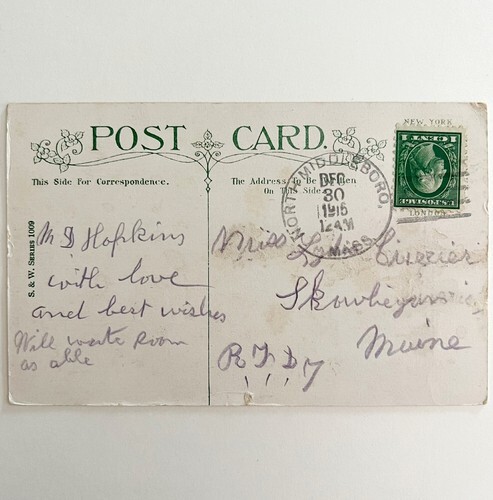 POST CARD.
NEW YORK
1 CENT 1
U.S. POSTAGE
LONDON
This Side For Correspondence.
The Address To Be
On This Side
NORTH MIDDLEBORO,
MASS.
DEC
30
1916
12 AM
S. & W. SERIES 1009
M D Hopkins
with love
and best wishes
Will write soon
as able
Miss Currier
Skowhegan
Maine
R F D